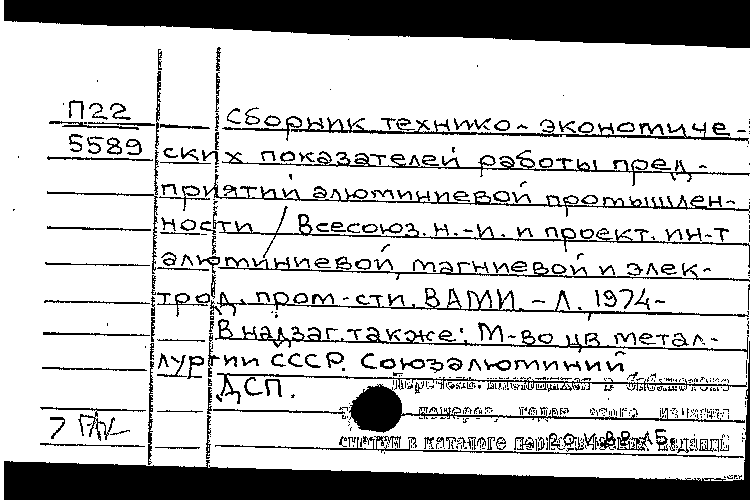 П22
5589
Сборник технико-экономиче-
ских показателей работы пред-
приятий алюминиевой промышлен-
ности / Всесоюз. н.-и. и проект. ин-т
алюминиевой, магниевой и элек-
трод. пром-сти. ВАМИ. - Л., 1974-
В надзаг. также: М-во цв. метал-
лургии СССР. Союзалюминий
ДСП.
Перечень имеющихся в библиотеке
номеров, годов этого издания
смотри в каталоге периодических изданий
7